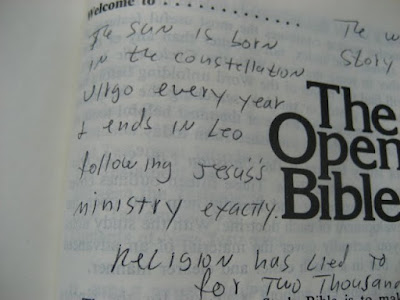 Welcome to . . . . . . . . . . .
The sun is born
in the constellation
virgo every year
& ends in Leo
following Jesus's
ministry exactly.
The w
story
The
Open
Bible
Religion has lied to
for two thousan